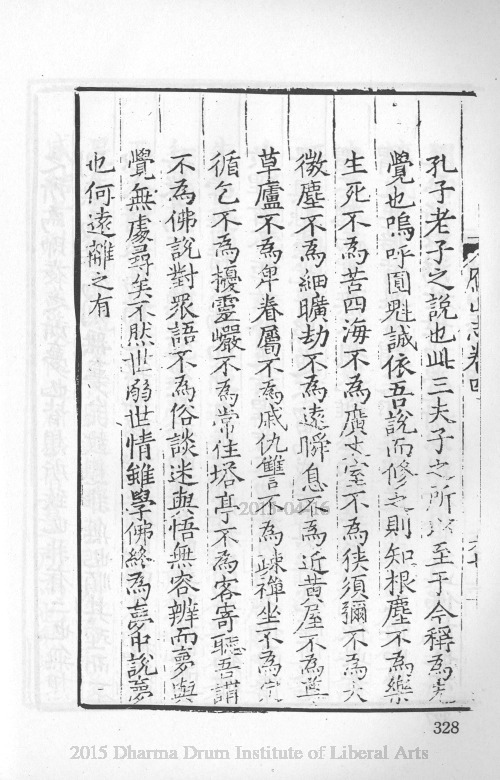 孔子老子之說也此三夫子之所以至于今稱為先
覺也嗚呼圓魁誠依吾說而修之則知根塵不為樂
生死不為苦四海不為廣丈室不為狹須彌不為大
微塵不為細曠劫不為遠瞬息不為近黃屋不為尊
草廬不為卑眷屬不為戚仇讐不為疎禪坐不為定
循乞不為擾靈巖不為常住塔亭不為客寄聽吾講
不為佛說對眾語不為俗談迷與悟無容辨而夢與
覺無處尋矣不然世弱世情雖學佛終為夢中說夢
也何遠離之有
山志卷四
328
2015-04-16
2015 Dharma Drum Institute of Liberal Arts